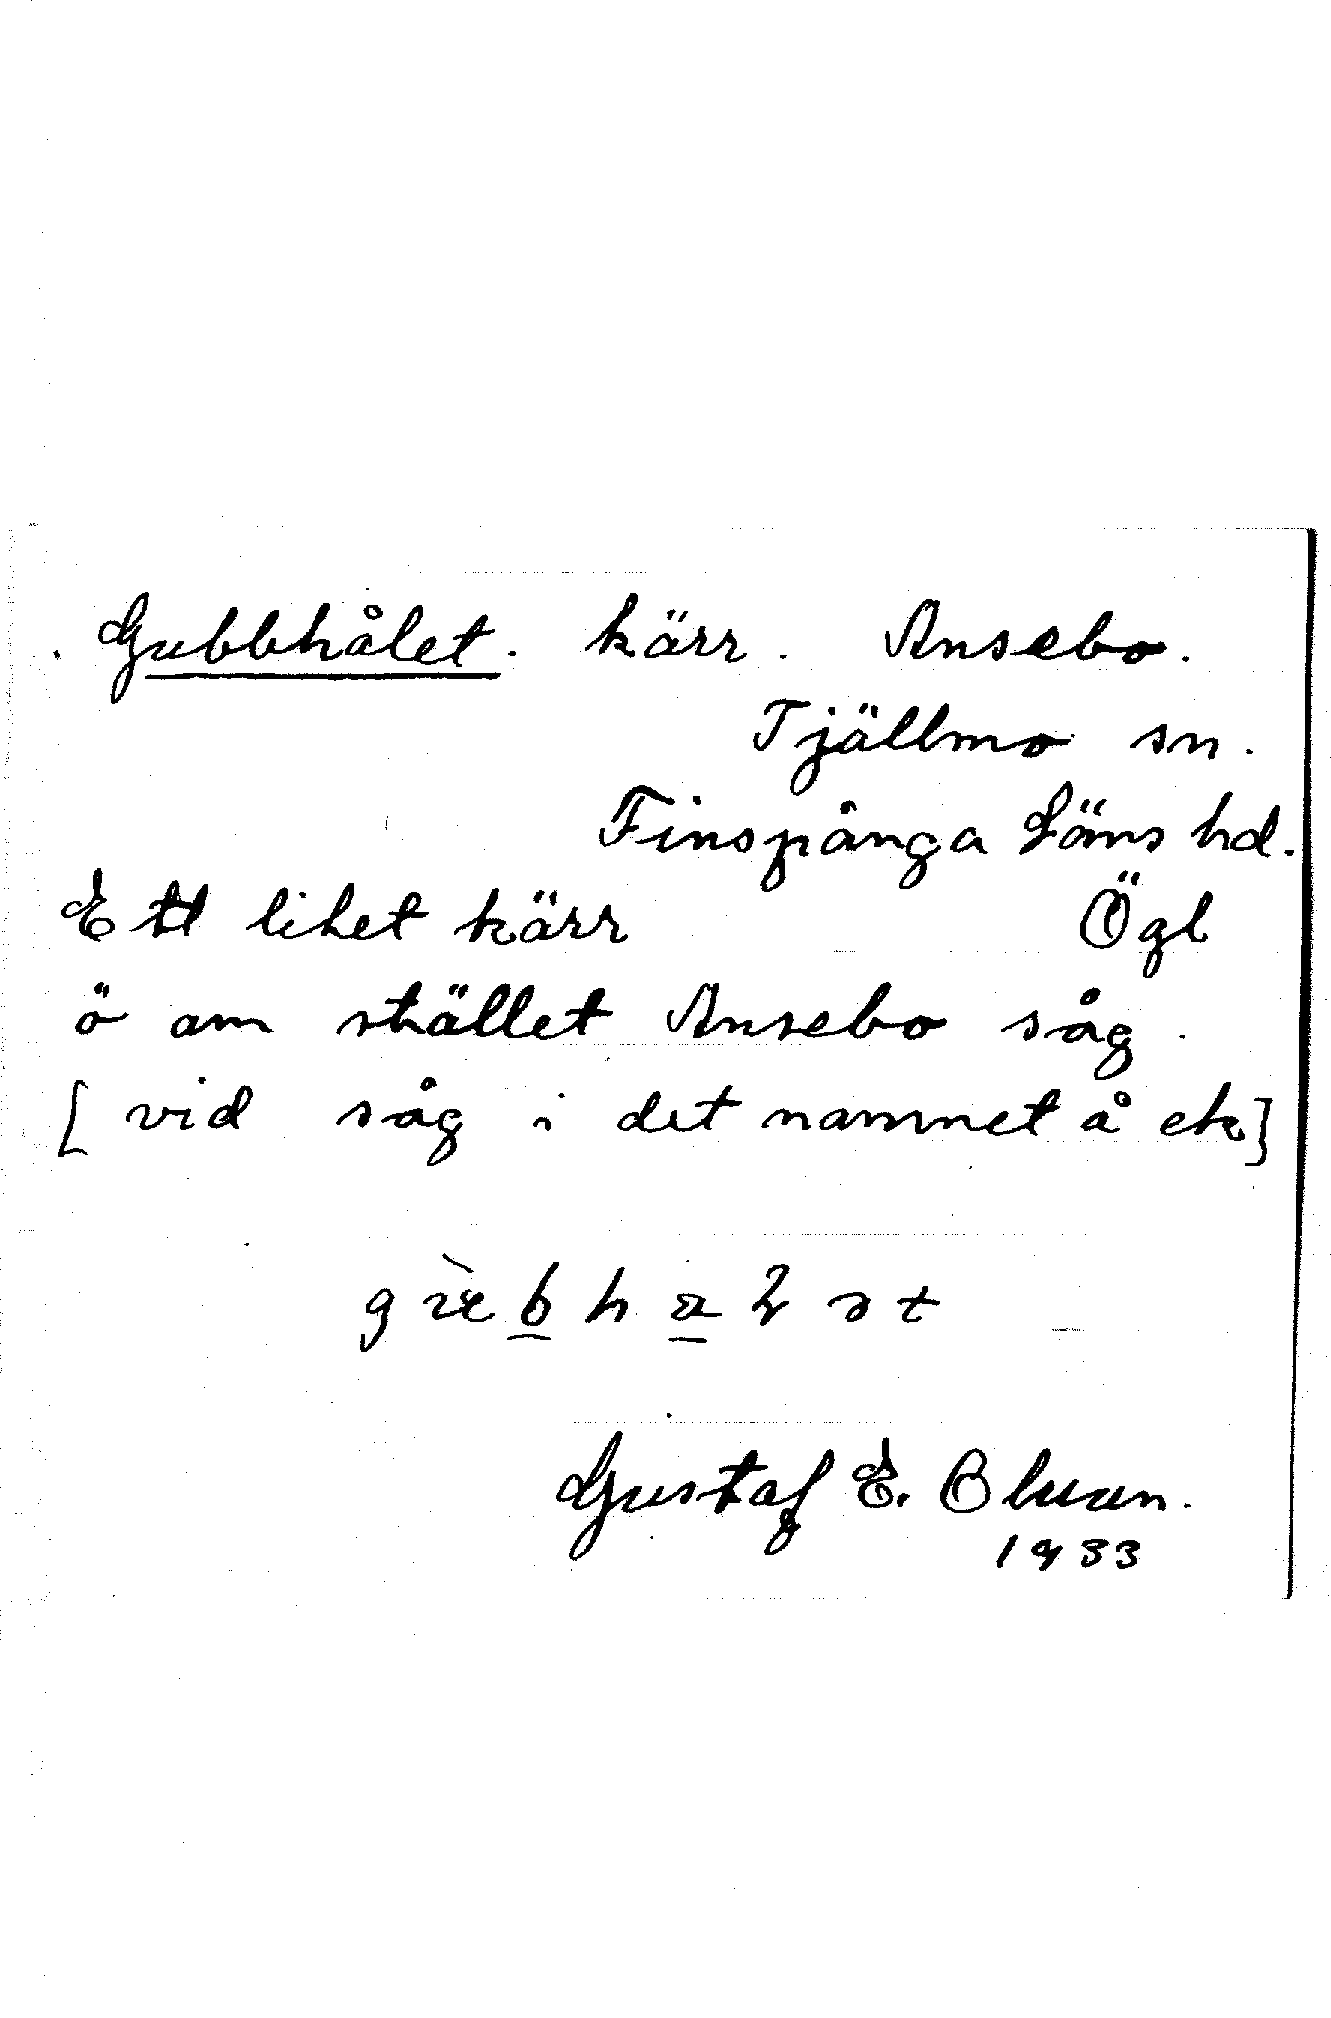 Gubbhålet. kärr. Ansebo.
Tjällmo sn.
Finspånga Läns hd.
Ett litet kärr Ögl
ö om stället Ansebo såg.
[vid såg i det namnet å ek]
Gustaf E.
1933